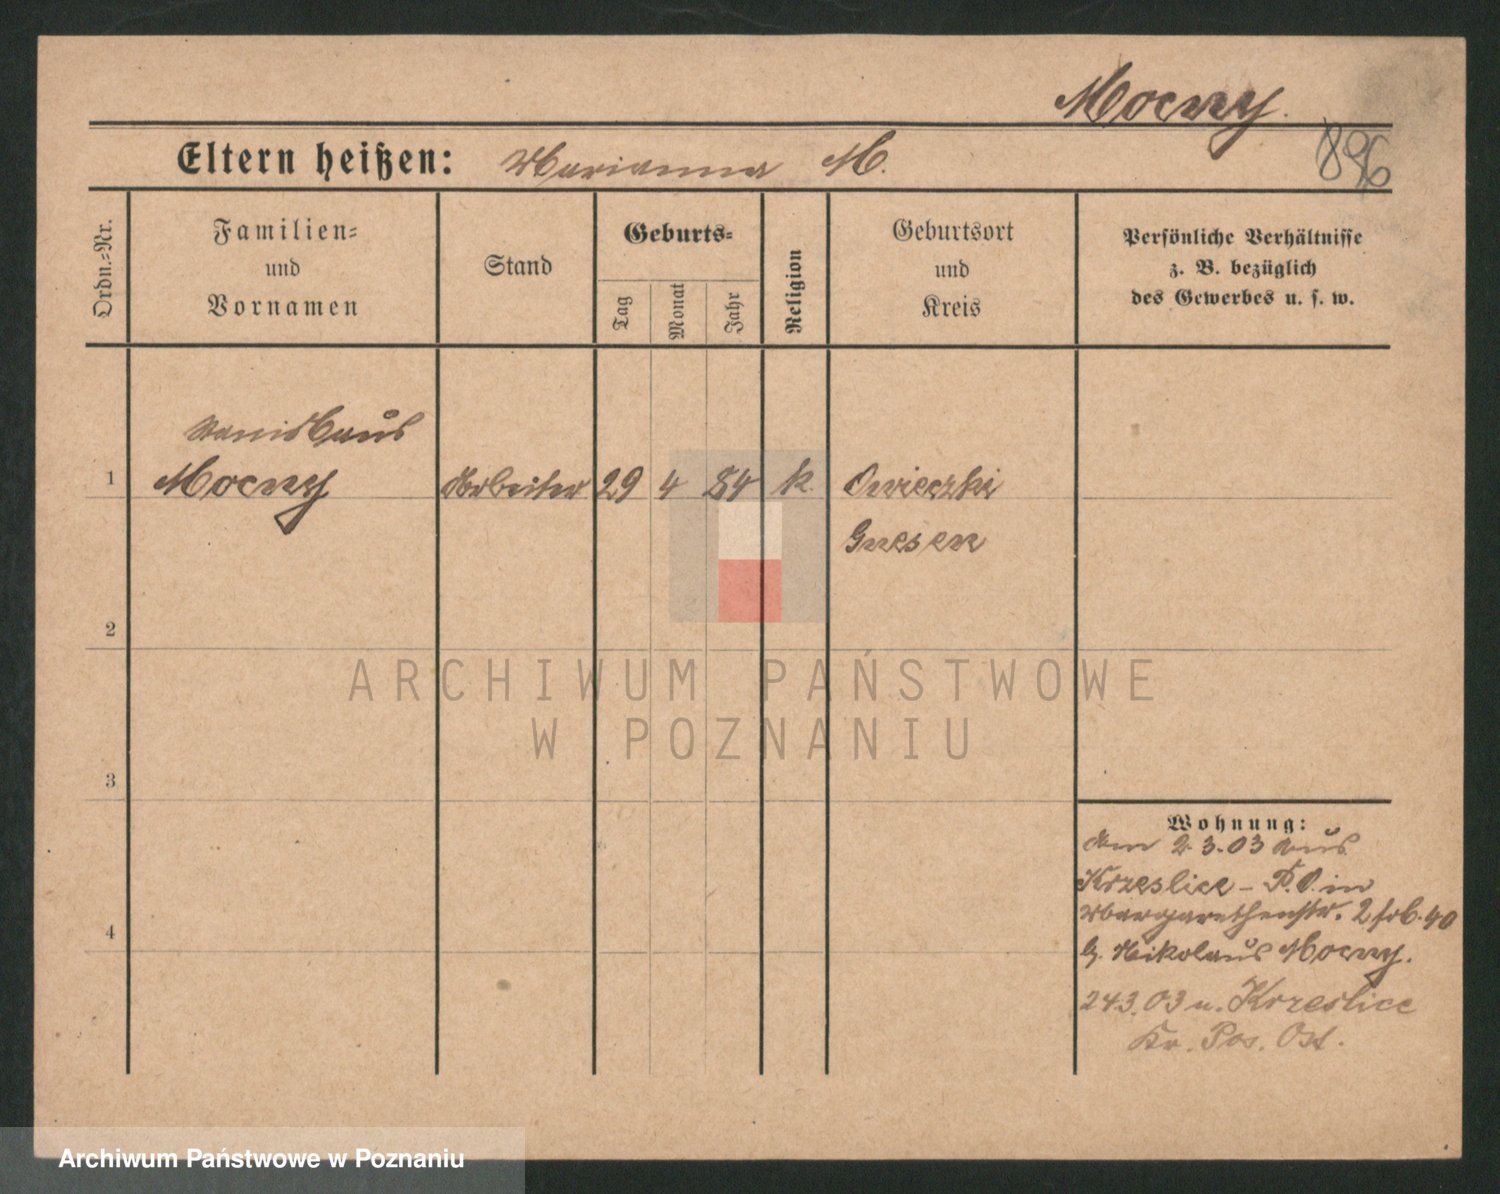 Mocny.
896
Eltern heißen: Marianna M.
Ordn.-Nr.
Familien-
und
Vornamen
Stand
Geburts-
Tag
Monat
Jahr
Religion
Geburtsort
und
Kreis
Persönliche Verhältnisse
z. B. bezüglich
des Gewerbes u. s. w.
Stanislaus
1 Mocny Arbeiter 29 4 84 k. Owieczki
Gnesen
2
3
4
Wohnung:
Am 2.3.03 aus
Krzeslice - P.O. in
Margarethenstr. 40
b. Nikolaus Mocny.
24.3.03 n. Krzeslice
Kr. Pos. Ost.
ARCHIWUM PAŃSTWOWE
W POZNANIU
Archiwum Państwowe w Poznaniu